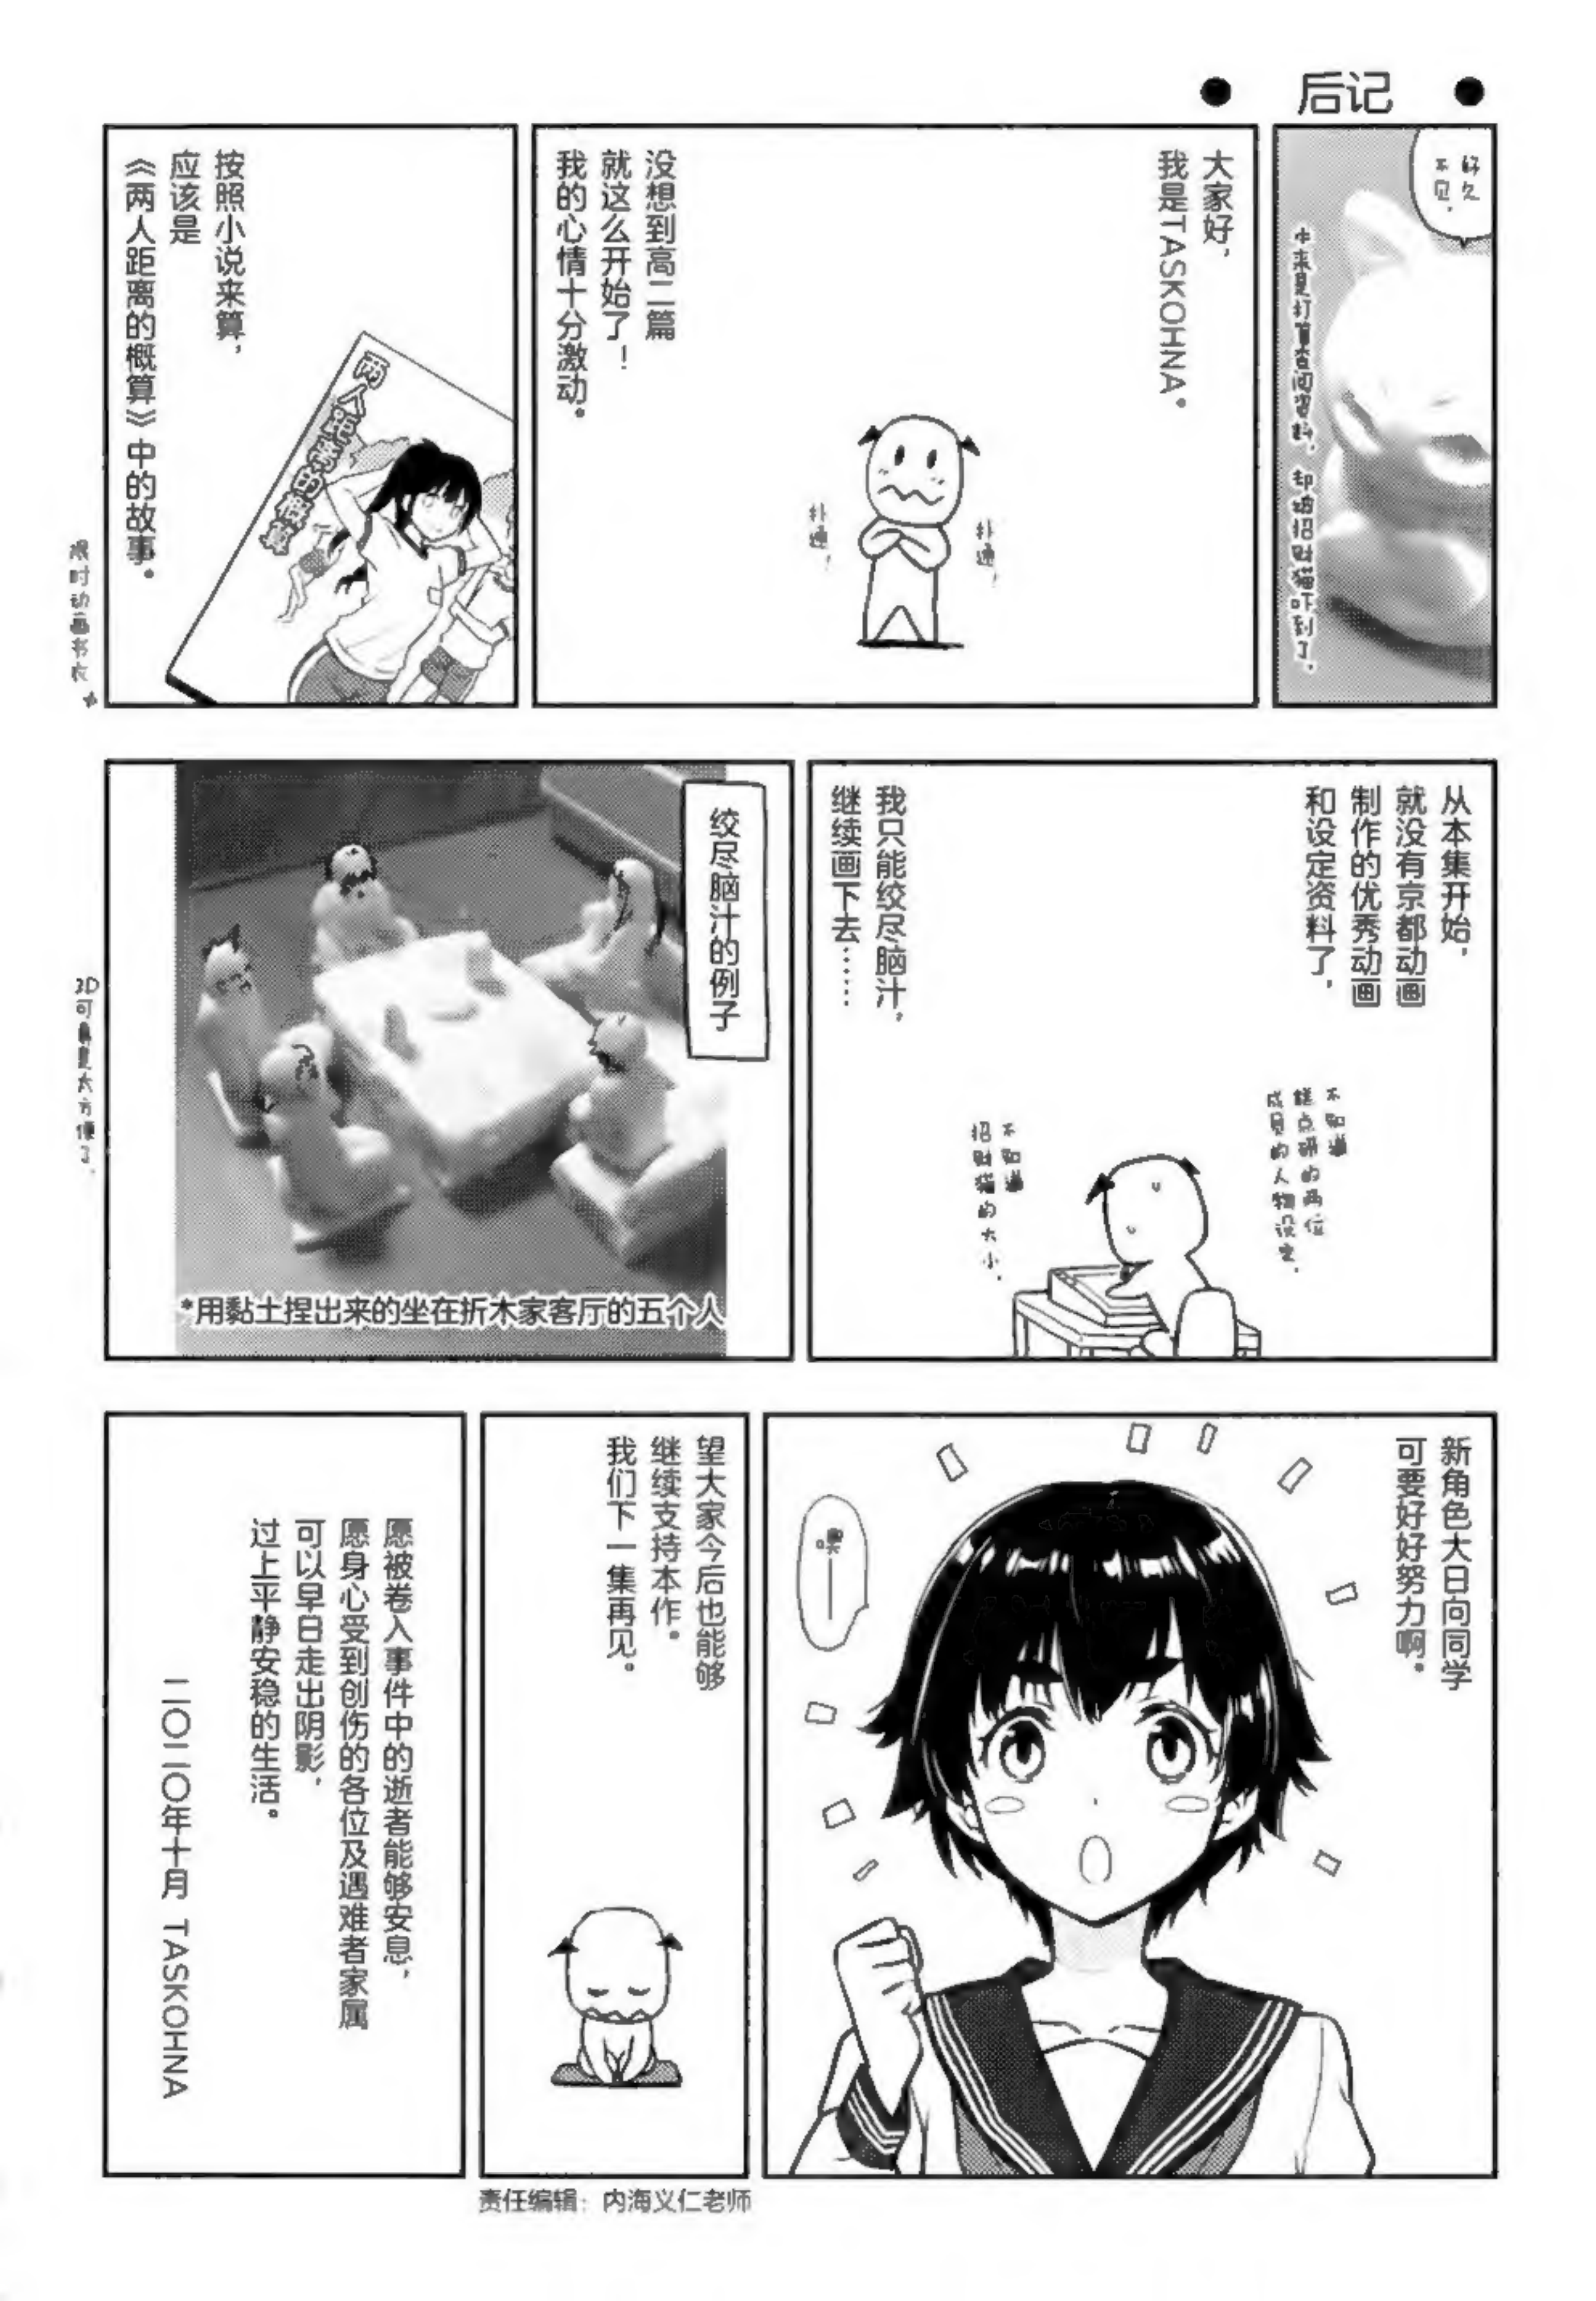 ● 后记 ●
好久
不见，
本来是打算查阅资料，却被招财猫吓到了，
大家好，
我是TASKOHNA。
扑通，
扑通，
没想到高二篇
就这么开始了！
我的心情十分激动。
按照小说来算，
应该是
《两人距离的概算》中的故事。
两人距离的概算
限时动画书衣★
从本集开始，
就没有京都动画
制作的优秀动画
和设定资料了，
不知道
糕点研的两位
成员的人物设定，
不知道
招财猫的大小，
我只能绞尽脑汁，
继续画下去……
绞尽脑汁的例子
*用黏土捏出来的坐在折木家客厅的五个人
3D可真是太方便了，
新角色大日向同学
可要好好努力啊。
望大家今后也能够
继续支持本作。
我们下一集再见。
愿被卷入事件中的逝者能够安息，
愿身心受到创伤的各位及遇难者家属
可以早日走出阴影，
过上平静安稳的生活。
二〇二〇年十月 TASKOHNA
责任编辑：内海义仁老师